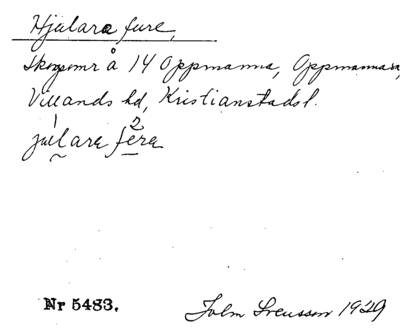 Hjulara fure,
Skogsområ å 14 Oppmanna, Oppmanna s,
Villands hd, Kristianstads l.
1 2
julara fere
Nr 5483.
John Svensson 1929